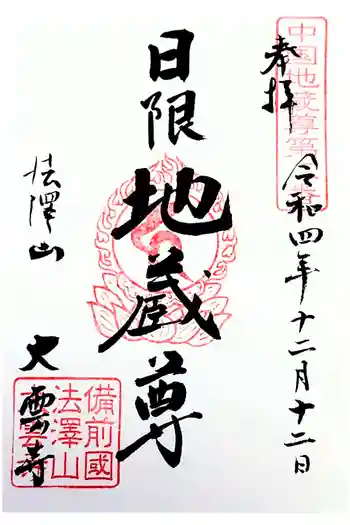 奉拝
中国地蔵尊第
令和四年十二月十二日
日限
地蔵尊
法澤山
大雲寺
備前國
法澤山